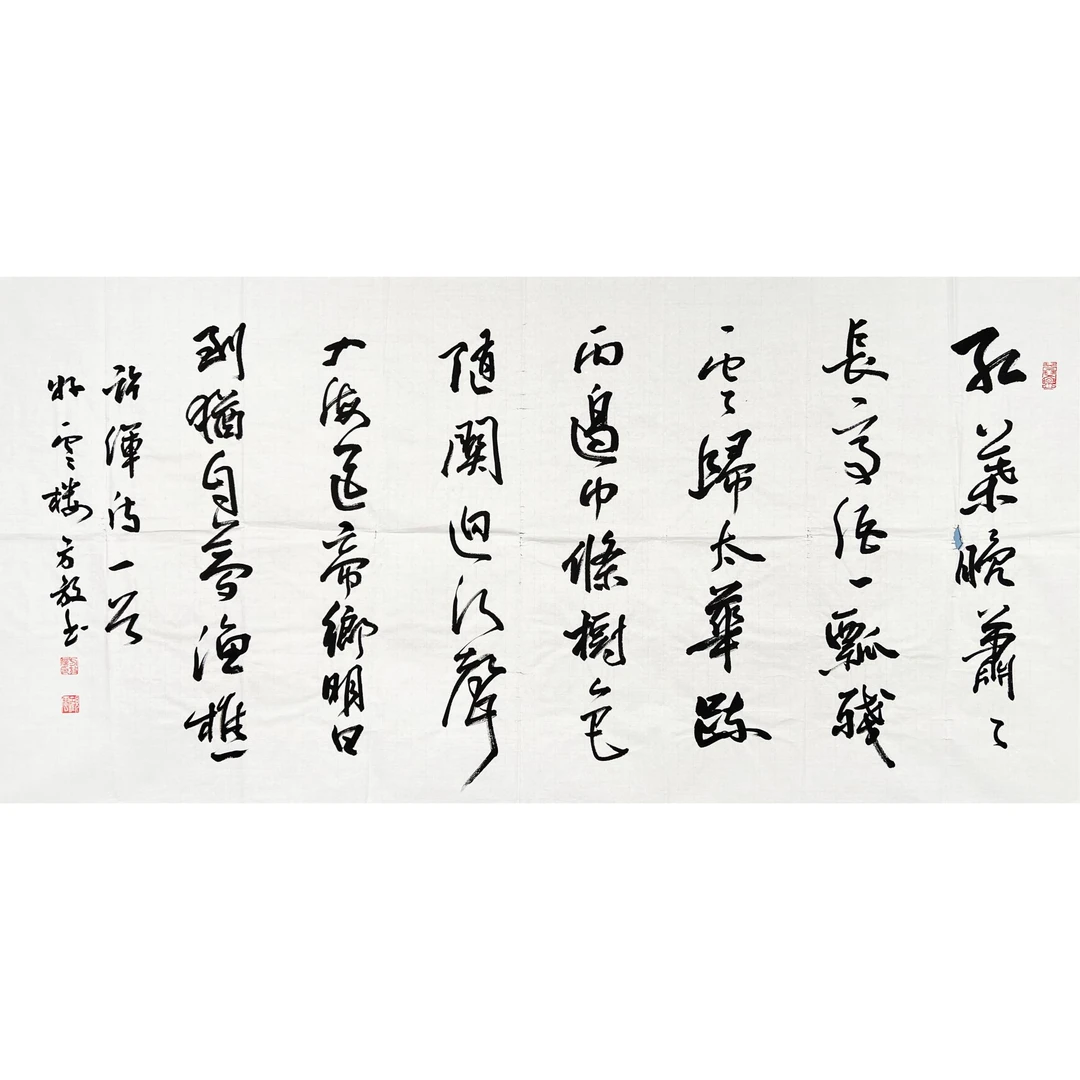 紅葉晚蕭〻
長亭酒一瓢殘
雲歸太華踈
雨過中條樹色
隨關迥河聲
入海遥帝鄉明日
到猶自夢漁樵
許渾詩一首
雲楼方书